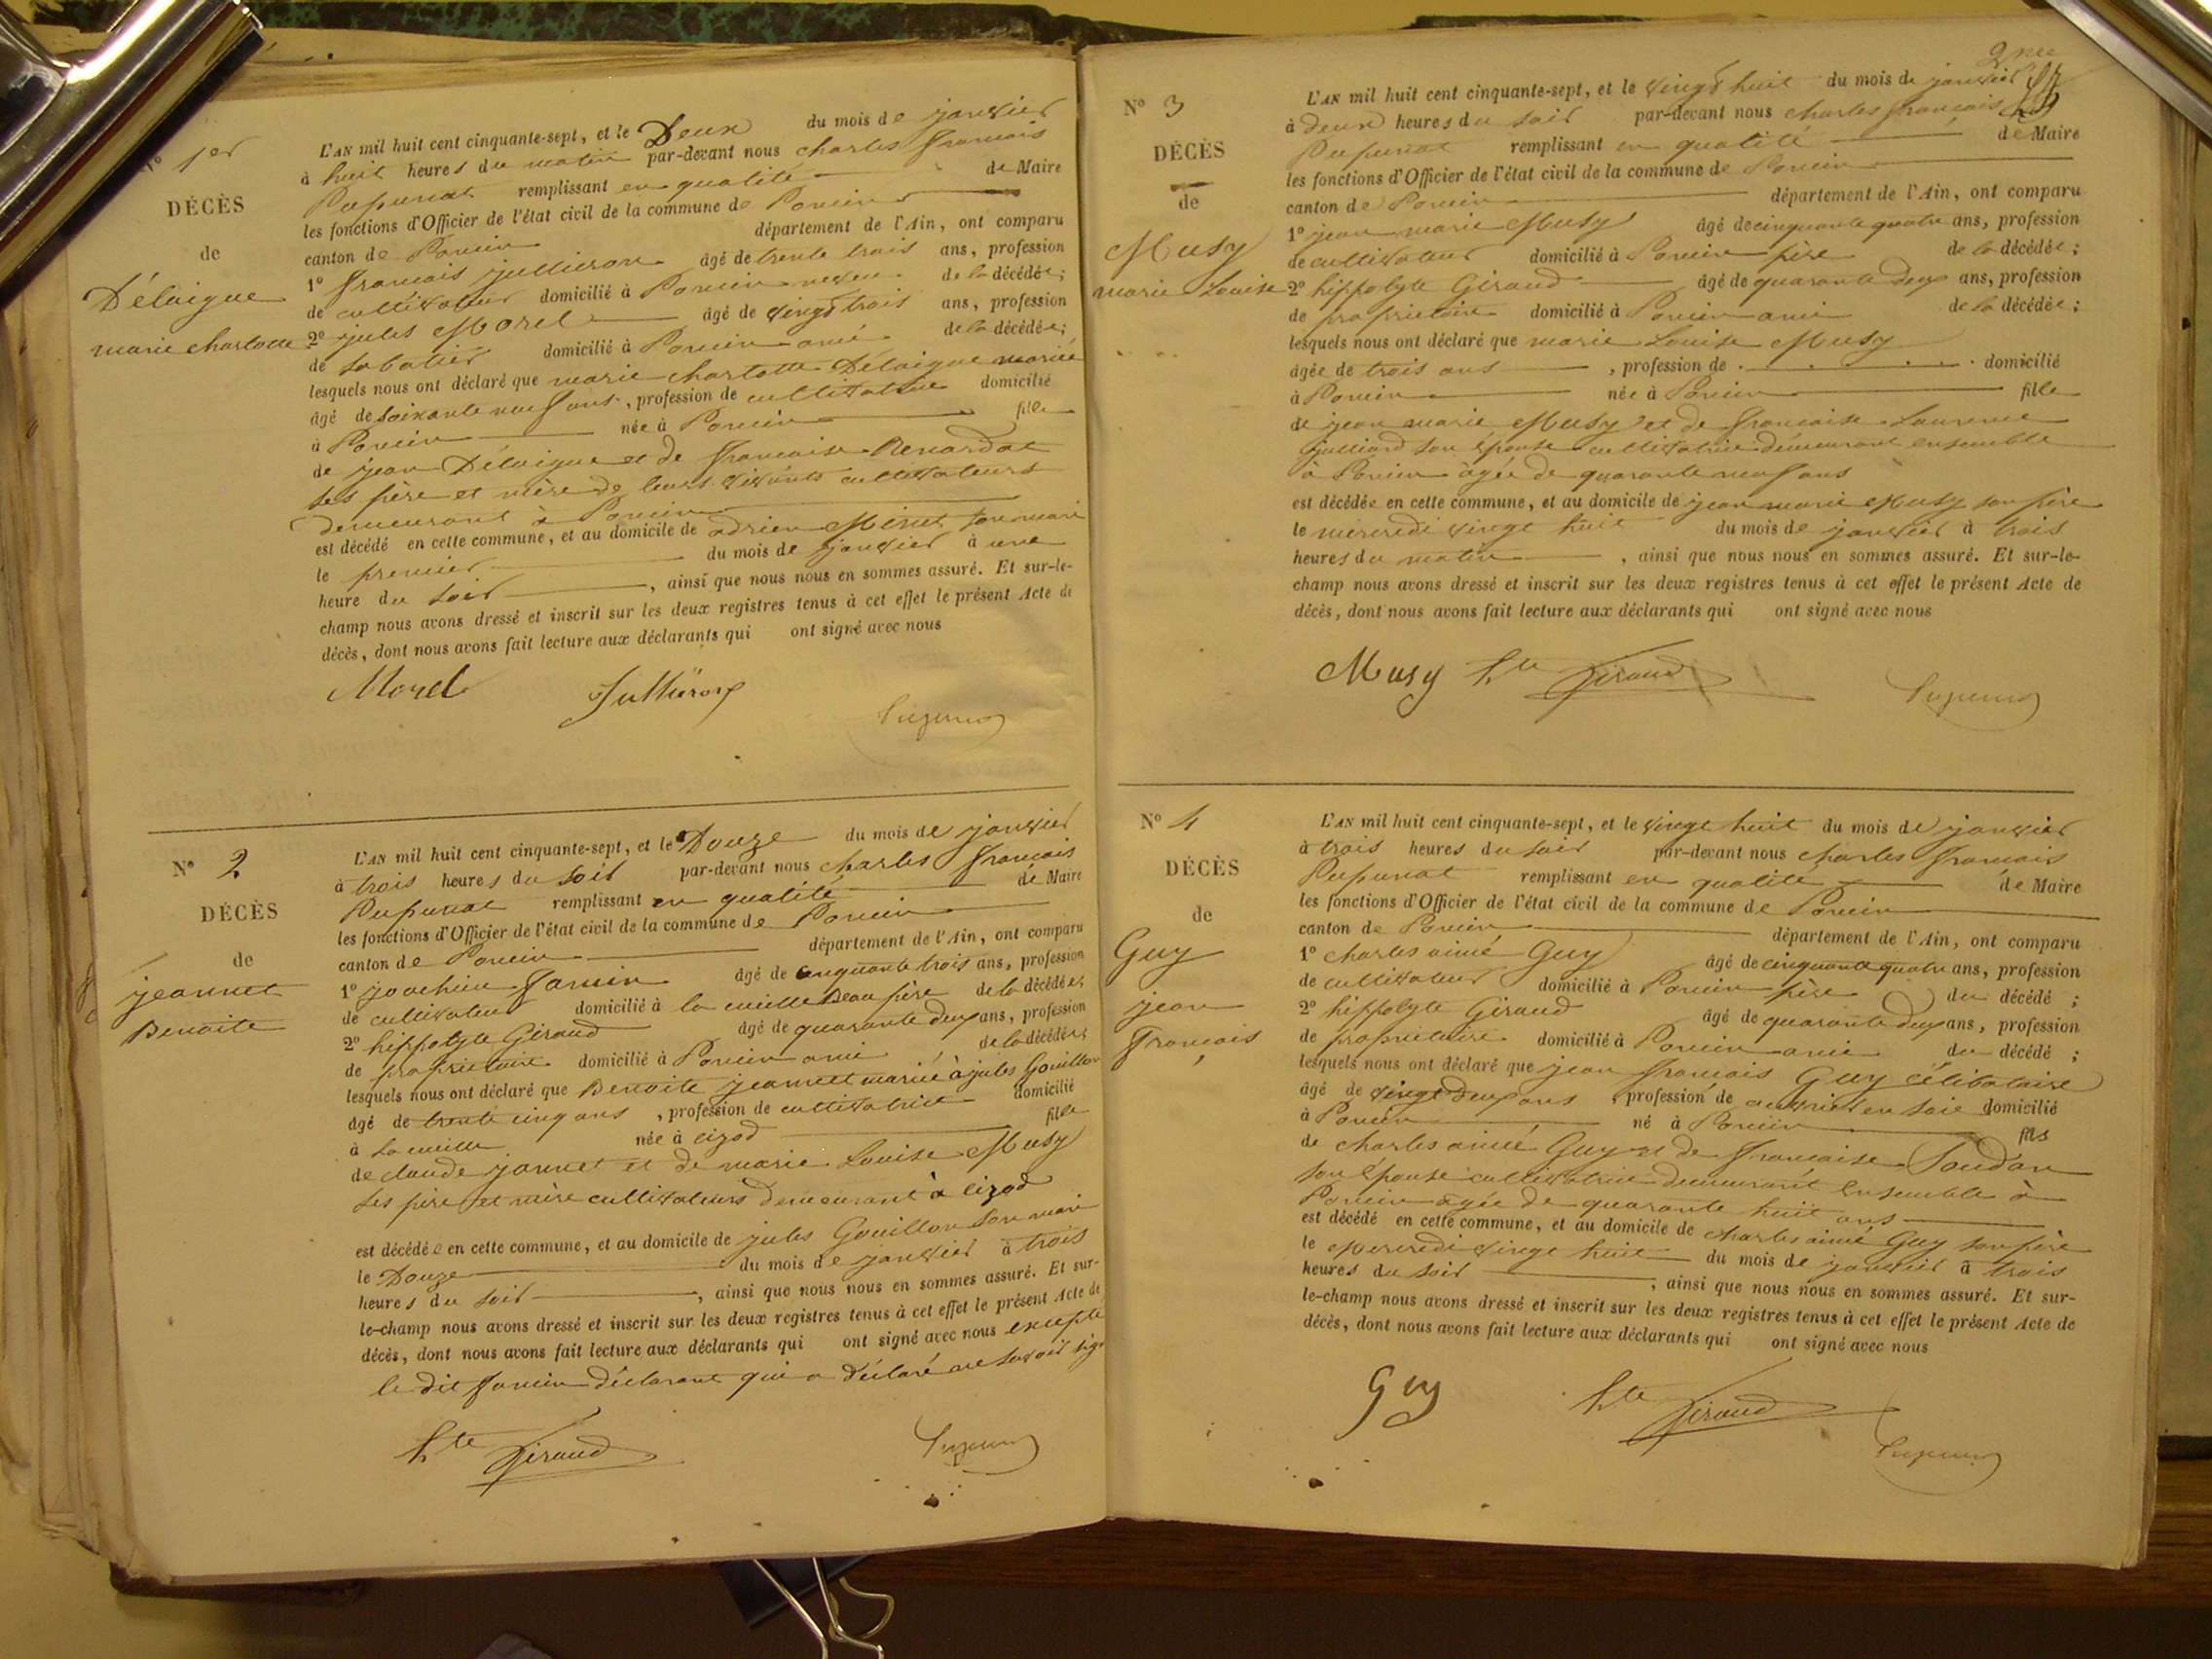 N° 1er
DÉCÈS
de
Délaigue
marie charlotte
L'AN mil huit cent cinquante-sept, et le Deux du mois de janvier
à huit heures du matin par-devant nous charles francois
Pupunat remplissant en qualité de Maire
les fonctions d'Officier de l'état civil de la commune de Poncin
canton de Poncin département de l'Ain, ont comparu
1° francois jullieron âgé de trente trois ans, profession
de cultivateur domicilié à Poncin neveu de la décédée;
2° jules Morel âgé de vingt trois ans, profession
de sabatier domicilié à Poncin ami de la décédée;
lesquels nous ont déclaré que marie charlotte Délaigue mariée
âgé de soixante neuf ans, profession de cultivatrice domicilié
à Poncin née à Poncin fille
de jean Délaigue et de francoise Renardat
ses père et mère de leurs vivants cultivateurs
demeurant à Poncin
est décédé en cette commune, et au domicile de adrien son mari
le premier du mois de janvier à une
heure du soir, ainsi que nous nous en sommes assuré. Et sur-le-
champ nous avons dressé et inscrit sur les deux registres tenus à cet effet le présent Acte de
décès, dont nous avons fait lecture aux déclarants qui ont signé avec nous
Morel Jullieron Pupunat
N° 2
DÉCÈS
de
jeannet
Benoite
L'AN mil huit cent cinquante-sept, et le Douze du mois de janvier
à trois heures du soir par-devant nous charles francois
Pupunat remplissant en qualité de Maire
les fonctions d'Officier de l'état civil de la commune de Poncin
canton de Poncin département de l'Ain, ont comparu
1° joachim Jamin âgé de cinquante trois ans, profession
de cultivateur domicilié à la cueille Beau père de la décédée;
2° hippolyte Giraud âgé de quarante deux ans, profession
de propriétaire domicilié à Poncin ami de la décédée;
lesquels nous ont déclaré que Benoite jeannet mariée à jules Gouillon
âgé de trente cinq ans, profession de cultivatrice domicilié
à la cueille née à cizod fille
de claude jannet et de marie Louise Musy
ses père et mère cultivateurs demeurant à cizod
est décédée en cette commune, et au domicile de jules Gouillon son mari
le Douze du mois de janvier à trois
heures du soir, ainsi que nous nous en sommes assuré. Et sur-
le-champ nous avons dressé et inscrit sur les deux registres tenus à cet effet le présent Acte de
décès, dont nous avons fait lecture aux déclarants qui ont signé avec nous excepté
le dit Jamin déclarant qui a déclaré ne savoir sign
hte Giraud Pupunat
N° 3
DÉCÈS
de
Musy
marie Louise
L'AN mil huit cent cinquante-sept, et le vingt huit du mois de janvier
à deux heures du soir par-devant nous charles francois
Pupunat remplissant en qualité de Maire
les fonctions d'Officier de l'état civil de la commune de Poncin
canton de Poncin département de l'Ain, ont comparu
1° jean marie Musy âgé de cinquante quatre ans, profession
de cultivateur domicilié à Poncin père de la décédée;
2° hippolyte Giraud âgé de quarante deux ans, profession
de propriétaire domicilié à Poncin ami de la décédée;
lesquels nous ont déclaré que marie Louise Musy
âgée de trois ans, profession de domicilié
à Poncin née à Poncin fille
de jean marie Musy et de francoise Laurence
julliard son épouse cultivatrice demeurant ensemble
à Poncin âgée de quarante neuf ans
est décédée en cette commune, et au domicile de jean marie Musy son père
le mercredi vingt huit du mois de janvier à trois
heures du matin, ainsi que nous nous en sommes assuré. Et sur-le-
champ nous avons dressé et inscrit sur les deux registres tenus à cet effet le présent Acte de
décès, dont nous avons fait lecture aux déclarants qui ont signé avec nous
Musy hte Giraud Pupunat
N° 4
DÉCÈS
de
Guy
jean
francois
L'AN mil huit cent cinquante-sept, et le vingt huit du mois de janvier
à trois heures du soir par-devant nous charles francois
Pupunat remplissant en qualité de Maire
les fonctions d'Officier de l'état civil de la commune de Poncin
canton de Poncin département de l'Ain, ont comparu
1° charles aimé Guy âgé de cinquante quatre ans, profession
de cultivateur domicilié à Poncin père du décédé;
2° hippolyte Giraud âgé de quarante deux ans, profession
de propriétaire domicilié à Poncin ami du décédé;
lesquels nous ont déclaré que jean francois Guy célibataire
âgé de vingt deux ans, profession de ouvrier en soie domicilié
à Poncin né à Poncin fils
de charles aimé Guy et de francoise Soudan
son épouse cultivatrice demeurant ensemble à
Poncin âgée de quarante huit ans
est décédé en cette commune, et au domicile de charles aimé Guy son père
le Mercredi vingt huit du mois de janvier à trois
heures du soir, ainsi que nous nous en sommes assuré. Et sur-
le-champ nous avons dressé et inscrit sur les deux registres tenus à cet effet le présent Acte de
décès, dont nous avons fait lecture aux déclarants qui ont signé avec nous
Guy hte Giraud Pupunat